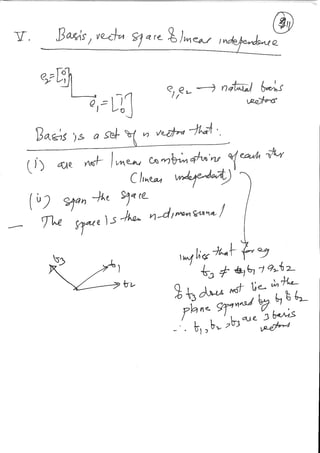 V. Basis, vector space & linear independence
e2 = [0 1]
e1 = [1 0]
e1, e2 → natural basis vectors
Basis is a set of n vectors that:
(i) are not linear combinations of each other
(linear independent)
(ii) span the space
The space is then n-dimensional
implies that for eg
b3 ≠ a1b1 + a2b2
b3
b1
b2
& b3 does not lie in the
plane spanned by b1 & b2
∴ b1, b2, b3 are 3 basis
vectors